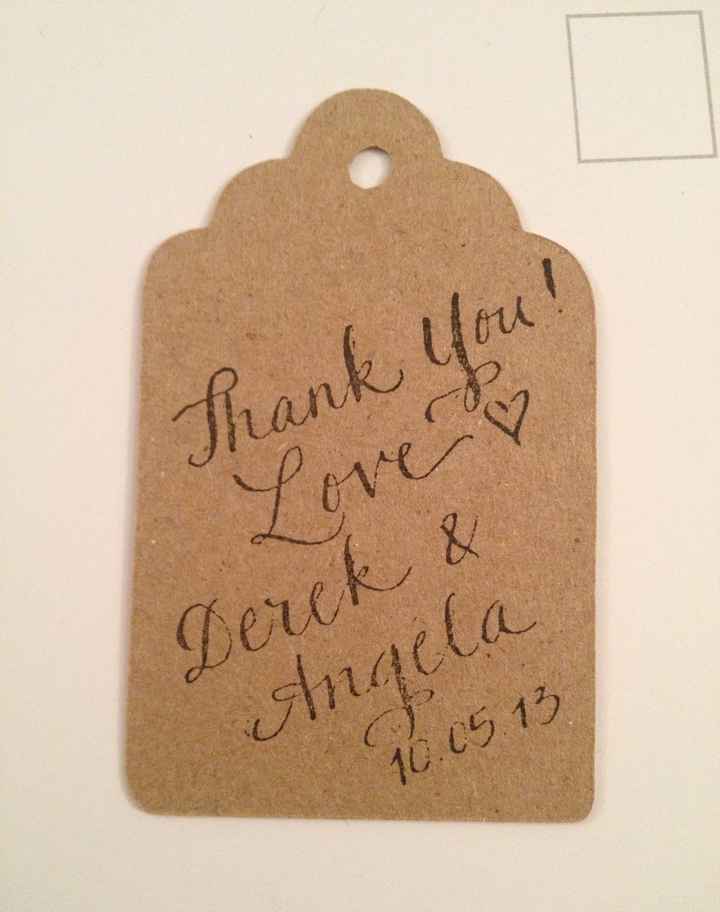 Thank You!
Love ♡
Derek &
Angela
10.05.13